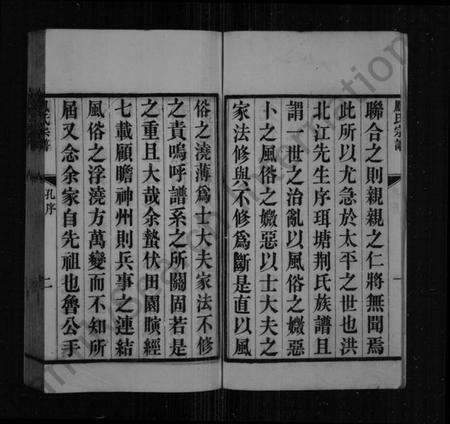 聯合之則親親之仁將無聞焉
此所以尤急於太平之世也洪
北江先生序珥塘荆氏族譜且
謂一世之治亂以風俗之媺惡
卜之風俗之媺惡以士大夫之
家法修與不修為斷是直以風
俗之澆薄為士大夫家法不修
之責嗚呼譜系之所關固若是
之重且大哉余蟄伏田園曠經
七載顧瞻神州則兵事之連結
風俗之浮澆方萬變而不知所
屆又念余家自先祖也魯公手
孔序
二